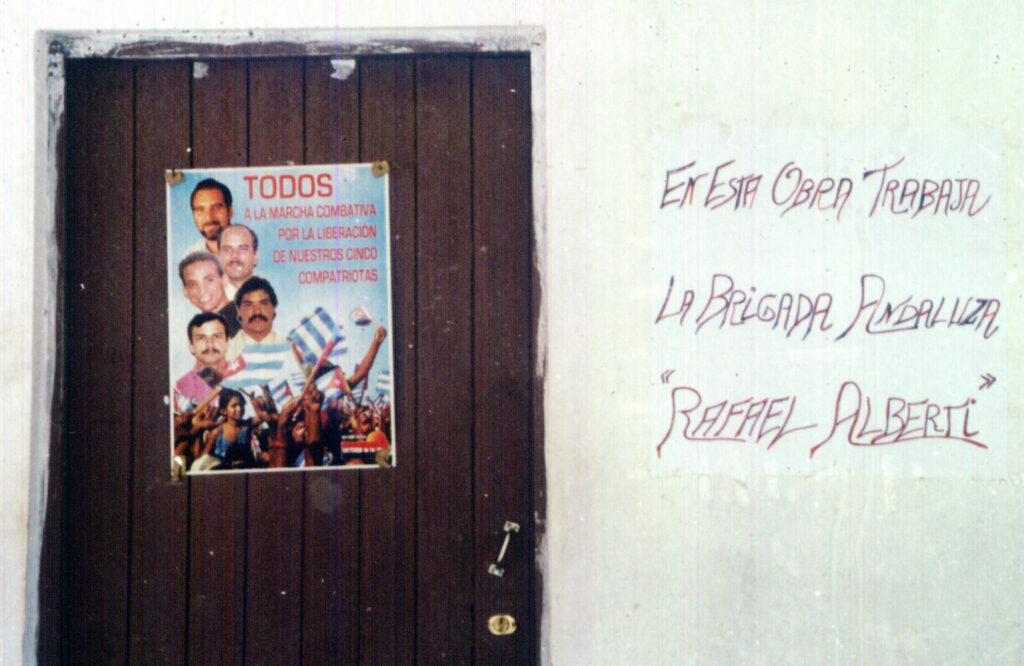 TODOS
A LA MARCHA COMBATIVA
POR LA LIBERACIÓN
DE NUESTROS CINCO
COMPATRIOTAS
En Esta Obra Trabaja
La Brigada Andaluza
"Rafael Alberti"